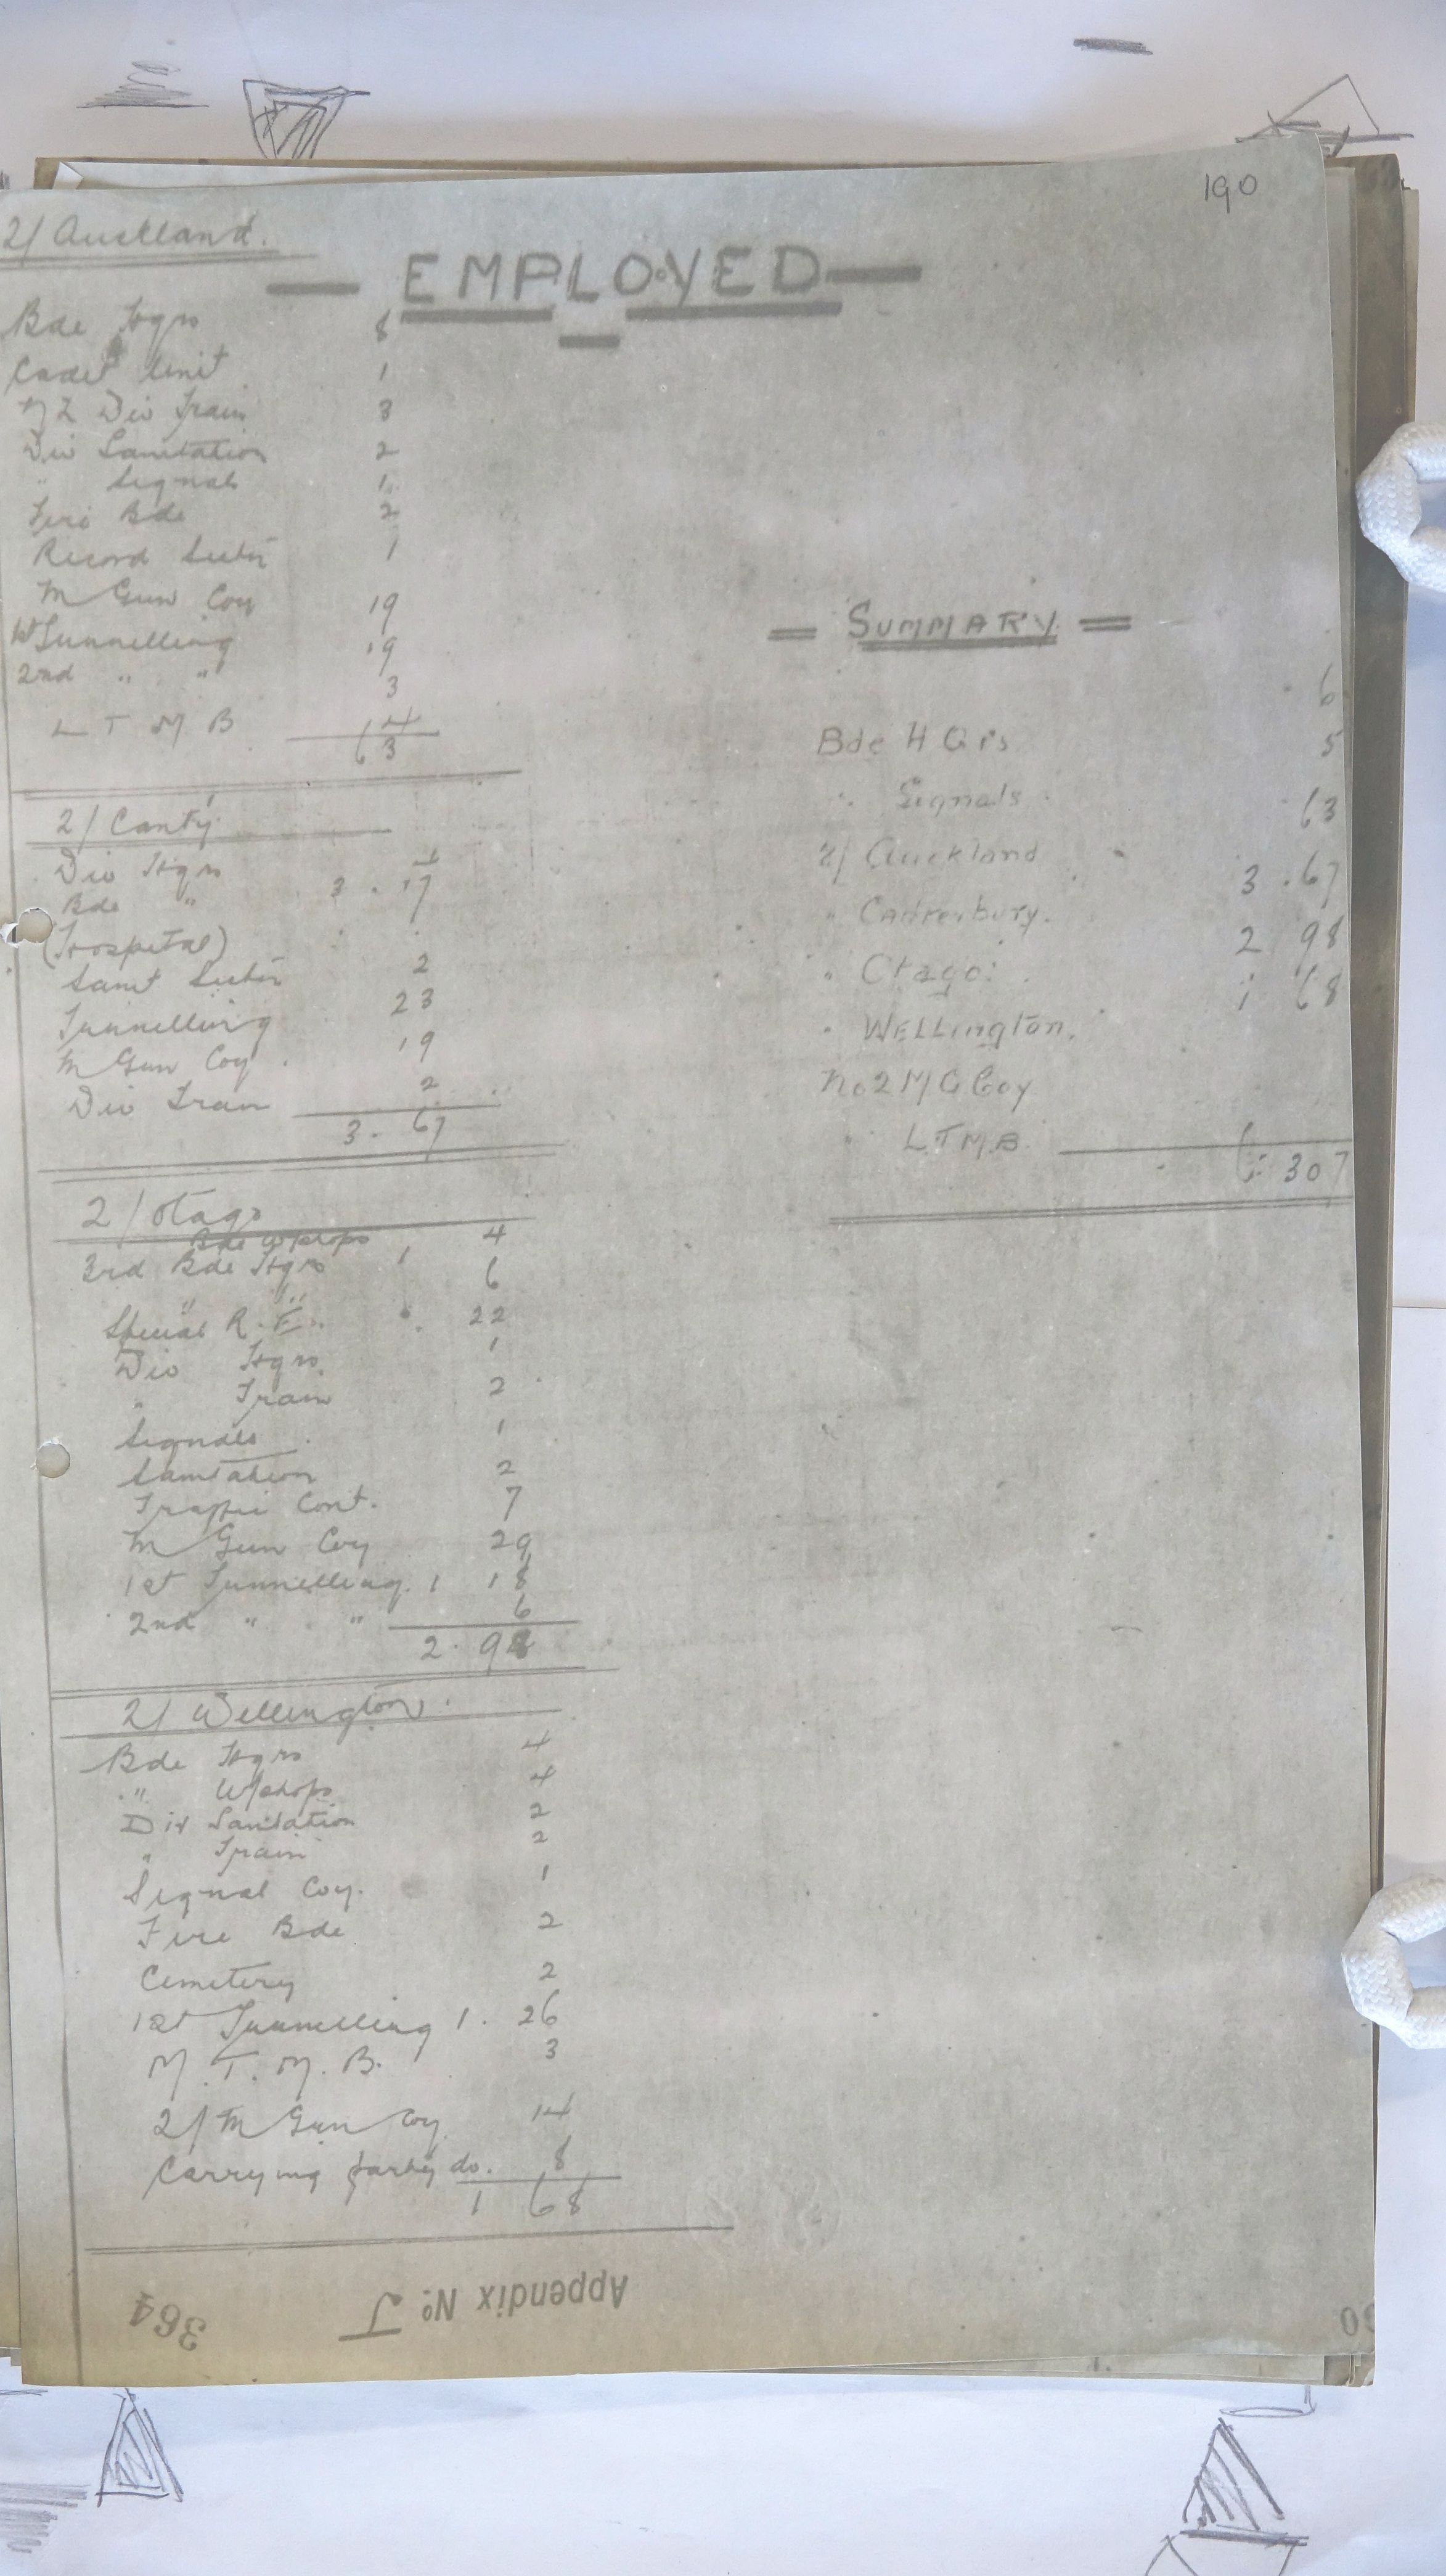 190
— EMPLOYED —
2/ Auckland.
Bde Hqrs 8
Cadet Unit 1
NZ Div Train 3
Div Sanitation 2
" Signals 1
Fire Bde 2
Record Sectn 1
M Gun Coy 19
1st Tunnelling 19
2nd " " 3
L T M B 4
63
2/ Canty.
Div Hqrs 4
Bde " 3 . 17
(Hospital)
Sant Sectn 2
Tunnelling 23
M Gun Coy . 19
Div Train 2
3 . 67
2/ Otago
Bde W/shops 4
3rd Bde Hqrs 1 6
Special R. E. 22
Div Hqrs 1
" Train 2
Signals 1
Sanitation 2
Traffic Cont. 7
M Gun Coy 29
1st Tunnelling. 1 18
2nd " " 6
2 . 98
2/ Wellington.
Bde Hqrs 4
" W/shops 4
Div Sanitation 2
" Train 2
Signal Coy. 1
Fire Bde 2
Cemetery 2
1st Tunnelling 1 . 26
M. T. M. B. 3
2/ M Gun Coy 14
Carrying party do. 8
1 68
= SUMMARY =
Bde H Qrs 6
" Signals 5
2/ Auckland 63
" Canterbury. 3 . 67
" Otago. 2 98
" WELLington. 1 68
No 2 M G Coy
" L.T.M.B.
6 : 307
Appendix No. J
364